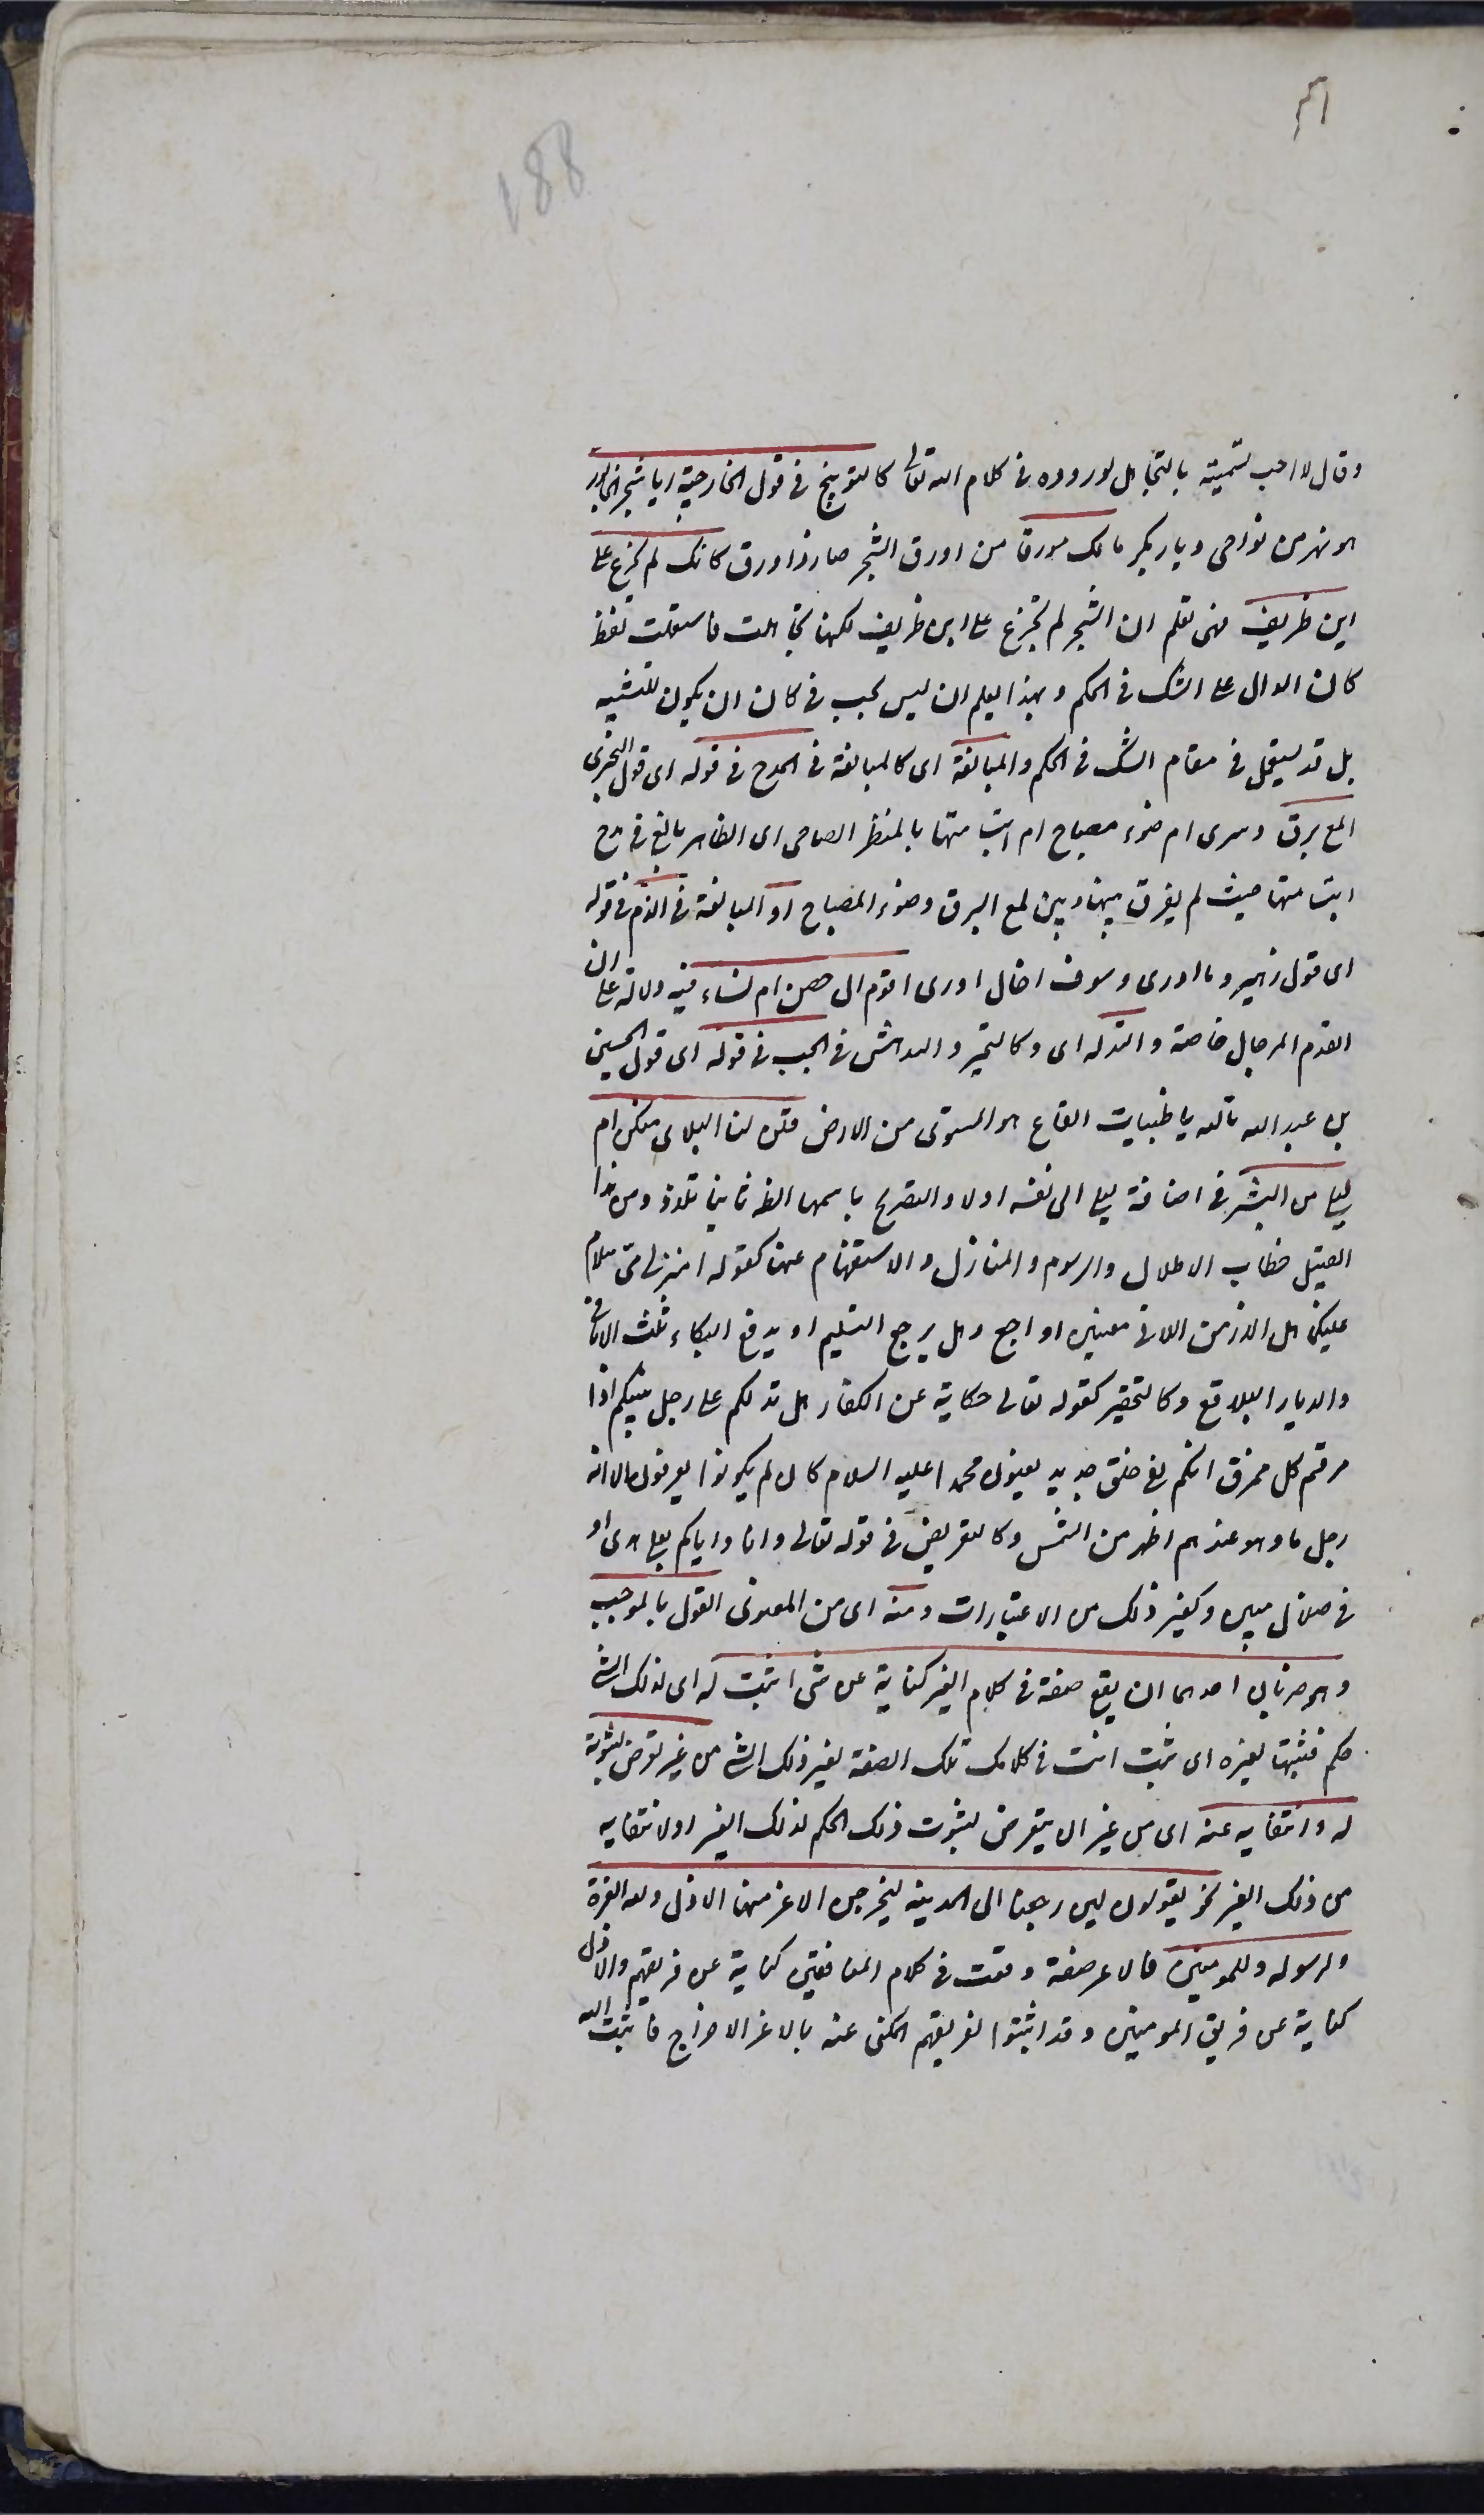 188
وقال لا احب تسميته بالتجاهل لوروده فى كلام الله تعالى كالتوبيخ فى قول الخارجية ايا شجر الخابور
هو نهر من نواحى ديار بكر مالك مورقا من اورق الشجر صار ذا ورق كانك لم تجزع على
ابن طريف فهى تعلم ان الشجر لم تجزع على ابن طريف لكنها تجاهلت فاستعملت لفظ
كان الدال على الشك فى الحكم وبهذا يعلم ان ليس يجب فى كان ان يكون للتشبيه
بل قد يستعمل فى مقام الشك فى الحكم والمبالغة اى كالمبالغة فى المدح فى قوله اى قول البحترى
المع برق سرى ام ضوء مصباح ام ابتسامتها بالمنظر الضاحى اى الظاهر بالغ فى مدح
ابتسامتها حيث لم يفرق بينها وبين لمع البرق وضوء المصباح او المبالغة فى الذم فى قوله
اى قول زهير وما ادرى وسوف اخال ادرى اقوم ال حصن ام نساء فيه دلالة على ان
القوم الرجال خاصة والتدله اى وكالتحير والتدهش فى الحب فى قوله اى قول الحسين
بن عبد الله تالله يا ظبيات القاع هو المستوى من الارض قلن لنا ليلاى منكن ام
ليلى من البشر فى اضافة ليلى الى نفسه اولا والتصريح باسمها الظ ثانيا تلذذ ومن هذا
القبيل خطاب الاطلال والرسوم والمنازل والاستفهام عنها كقوله امنزلى مى سلام
عليكما هل الازمن اللاتى مضين رواجع وهل يرجع التسليم او يدفع البكاء ثلث الاثافى
والديار البلاقع وكالتحقير كقوله تعالى حكاية عن الكفار هل ندلكم على رجل ينبئكم اذا
مزقتم كل ممزق انكم لفى خلق جديد يعنون محمدا عليه السلام كان لم يكونوا يعرفون الا انه
رجل ما وهو عندهم اظهر من الشمس وكالتعريض فى قوله تعالى وانا واياكم لعلى هدى او
فى ضلال مبين وكغير ذلك من الاعتبارات ومنه اى من المعنوى القول بالموجب
وهو ضربان احدهما ان يقع صفة فى كلام الغير كناية عن شى اثبت له اى لذلك الشى
حكم فتثبتها لغيره اى تثبت انت فى كلامك تلك الصفة لغير ذلك الشى من غير تعرض لثبوته
له وانتفايه عنه اى من غير ان يتعرض لثبوت ذلك الحكم لذلك الغير او لانتفايه
من ذلك الغير نحو يقولون لين رجعنا الى المدينة ليخرجن الاعز منها الاذل ولله العزة
ولرسوله وللمومنين فالاعز صفة وقعت فى كلام المنافقين كناية عن فريقهم والاذل
كناية عن فريق المومنين وقد اثبتوا لفريقهم المكنى عنه بالاعز الاخراج فاثبت الله